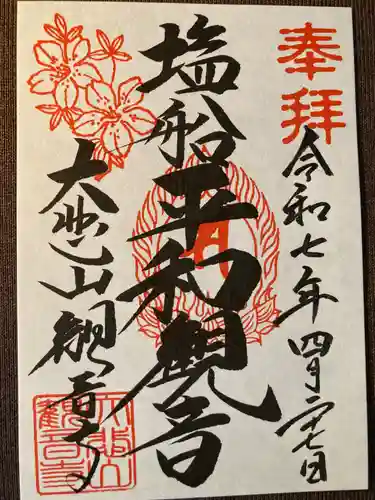 奉拝
令和七年四月二十七日
塩船平和観音
大悲山観音寺
大悲山観音寺